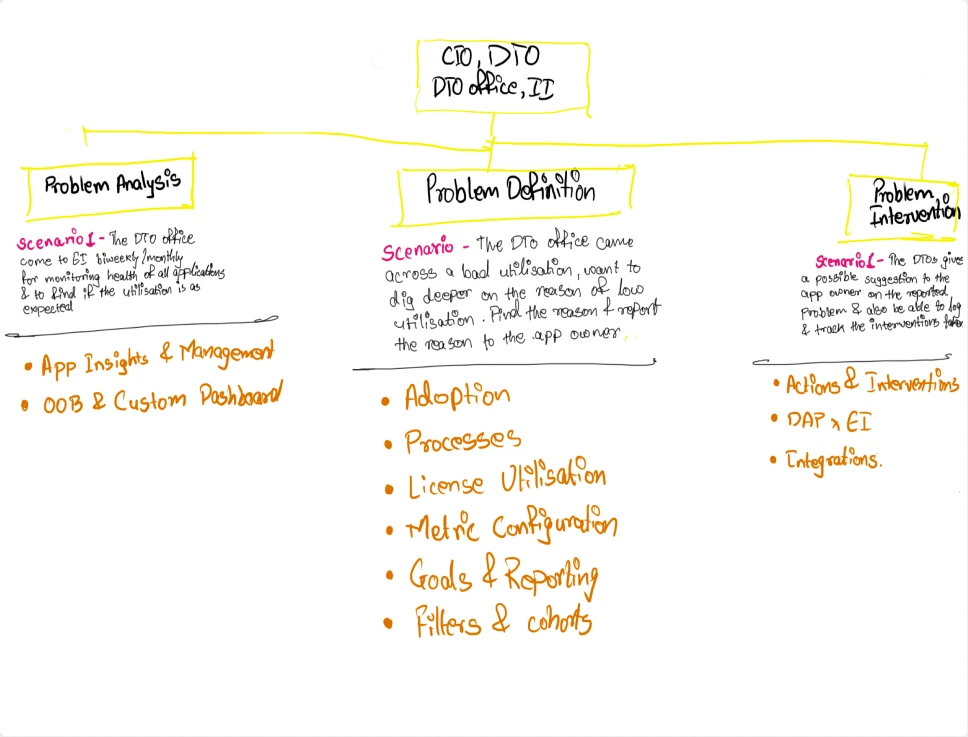 CIO, DTO
DTO office, II
Problem Analysis
Scenario 1 - The DTO office
come to EI biweekly/monthly
for monitoring health of all applications
& to find if the utilisation is as
expected
• App Insights & Management
• OOB & Custom Dashboard
Problem Definition
Scenario - The DTO office came
across a bad utilisation, want to
dig deeper on the reason of low
utilisation. Find the reason & report
the reason to the app owner.
• Adoption
• Processes
• License Utilisation
• Metric Configuration
• Goals & Reporting
• Filters & cohorts
Problem
Intervention
Scenario 1 - The DTOs give
a possible suggestion to the
app owner on the reported
Problem & also be able to log
& track the interventions taken
• Actions & Interventions
• DAP x EI
• Integrations.